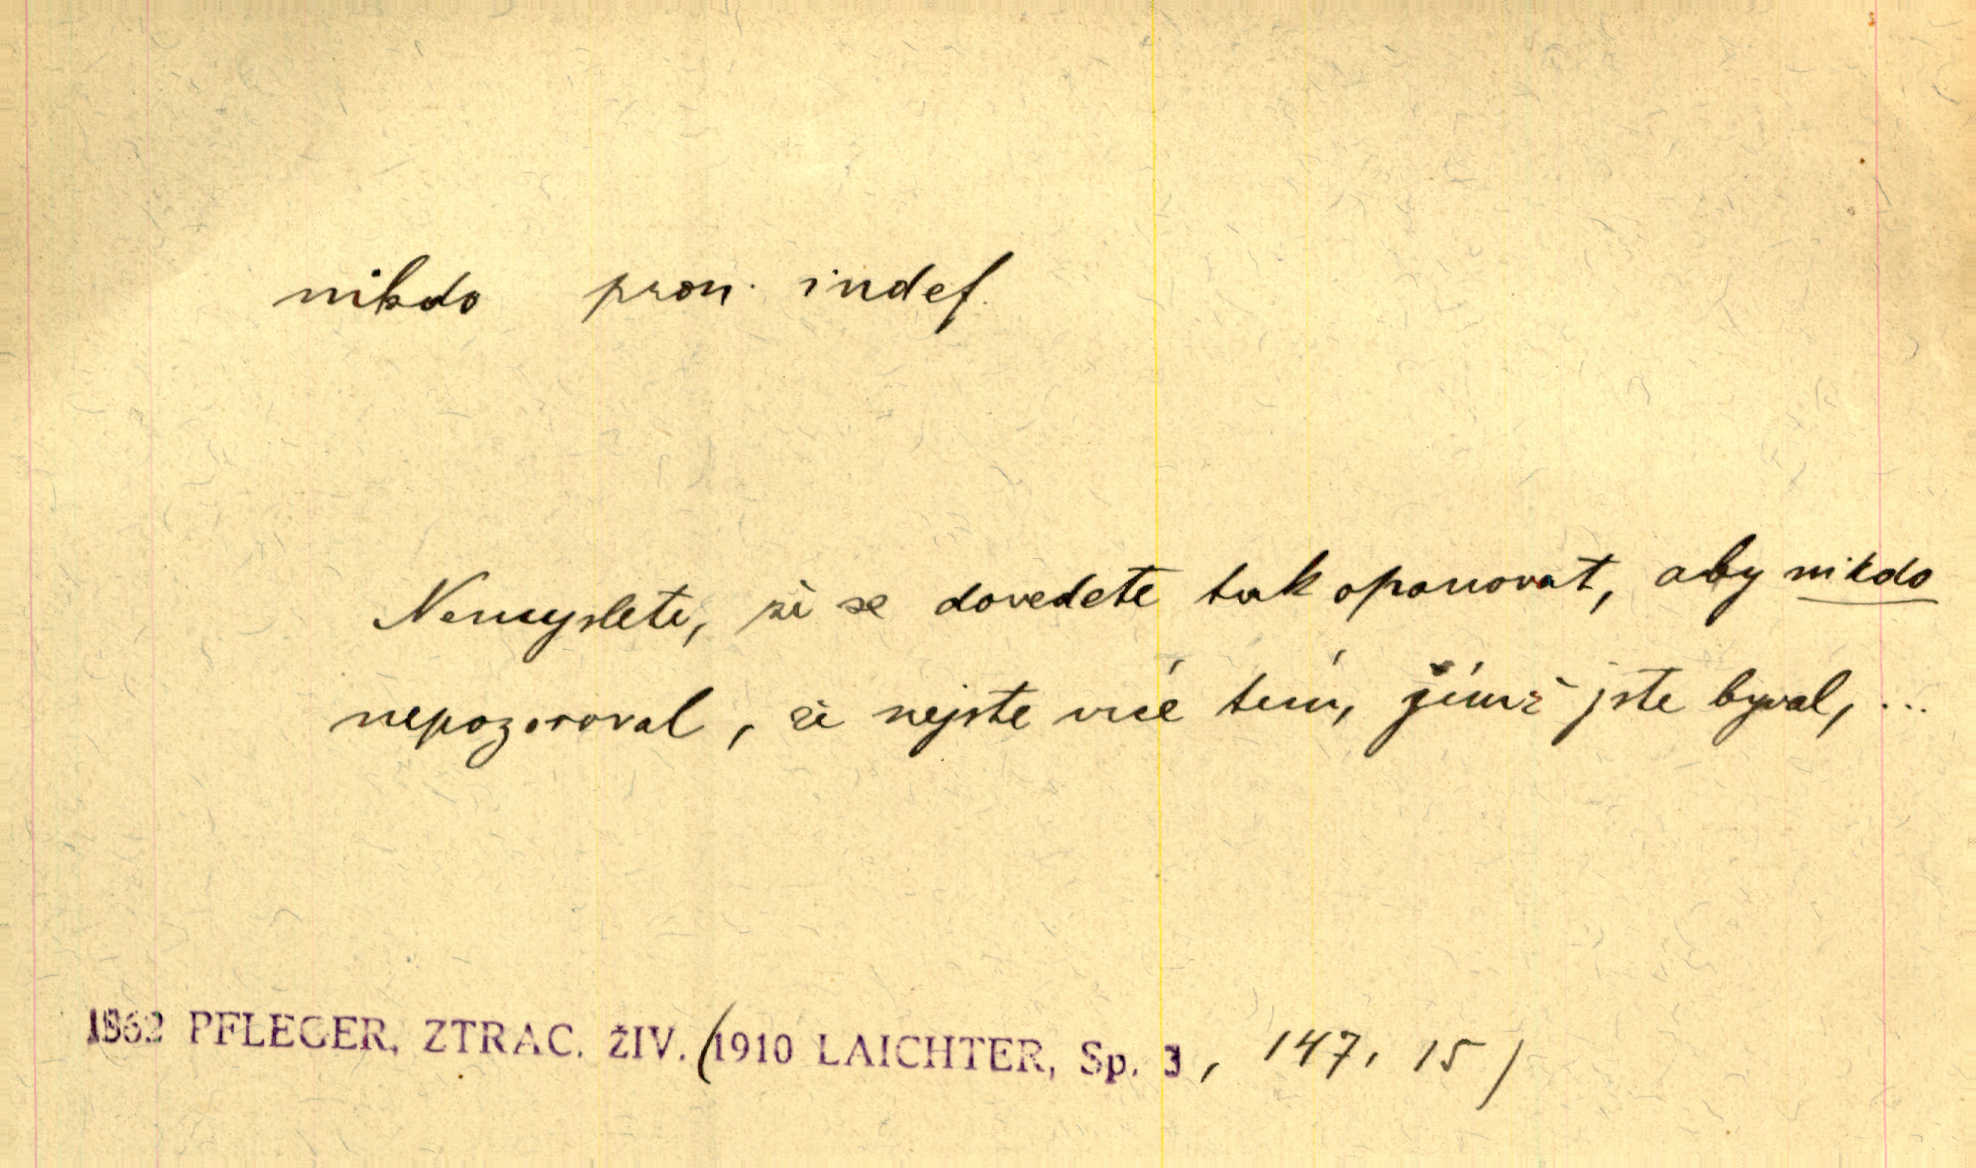 nikdo pron. indef.
Nemyslete, že se dovedete tak opanovat, aby nikdo
nepozoroval, že nejste více tím, jímž jste býval, ...
1862 PFLEGER, ZTRAC. ŽIV. (1910 LAICHTER, Sp. 3, 147, 15)